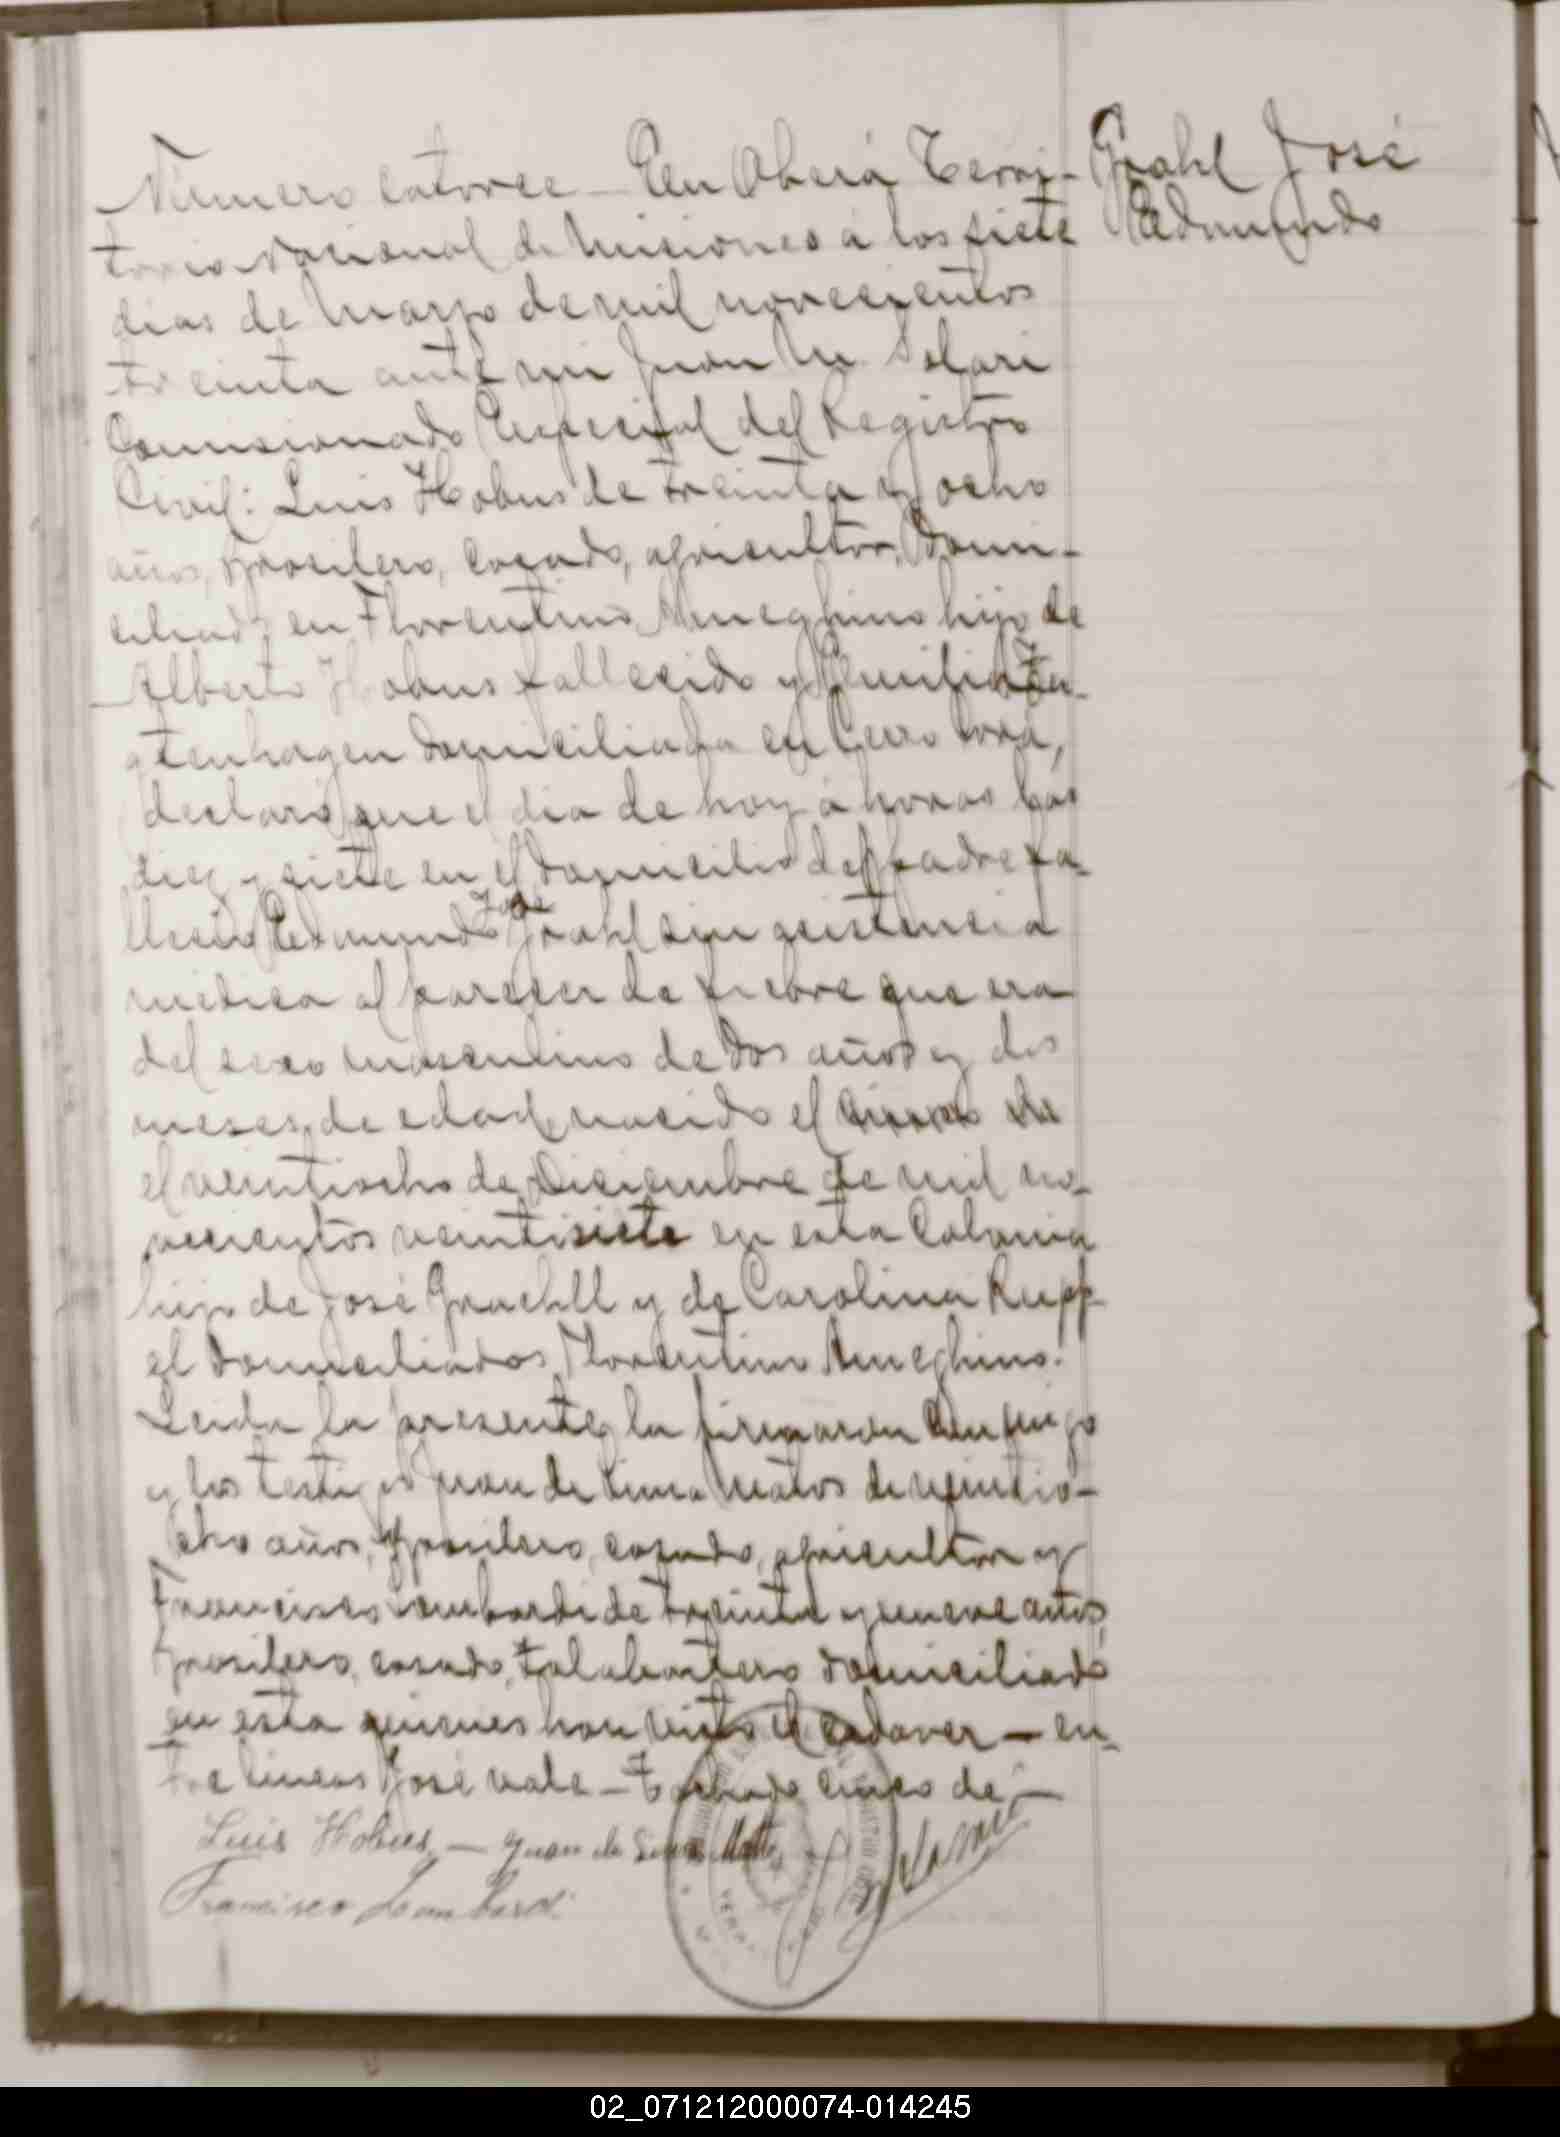 Número catorce – En Oberá Terri-
torio Nacional de Misiones á los siete
dias de Marzo de mil novecientos
treinta ante mi Juan M. Solari
Comisionado Especial del Registro
Civil: Luis Hobus de treinta y ocho
años, brasilero, casado, agricultor, domi-
ciliado en Florentino Ameghino hijo de
Alberto Hobus fallecido y Emilia
domiciliada en Cerro Corá,
declaró que el dia de hoy á horas las
diez y siete en el domicilio del padre fa-
José
lleció Edmundo Grahl sin asistencia
médica al parecer de fiebre que era
del sexo masculino de dos años y dos
meses de edad, nacido el cinco de
el veintiocho de Diciembre de mil no-
vecientos veintisiete en esta Colonia
hijo de José Graehll y de Carolina Rupp-
el domiciliados Florentino Ameghino.
Leida la presente, la firmaron conmigo
y los testigos Juan de Lima Matos de veintio-
cho años, brasilero, casado, agricultor y
Francisco Lombardi de treinta y nueve años,
brasilero, casado, talabartero domiciliado
en esta quienes han visto el cadaver – en-
tre lineas José vale – Testado cinco de –
Luis Hobus – Juan de Lima Matto
Francisco Lombardi
Grahl José
Edmundo
02_071212000074-014245